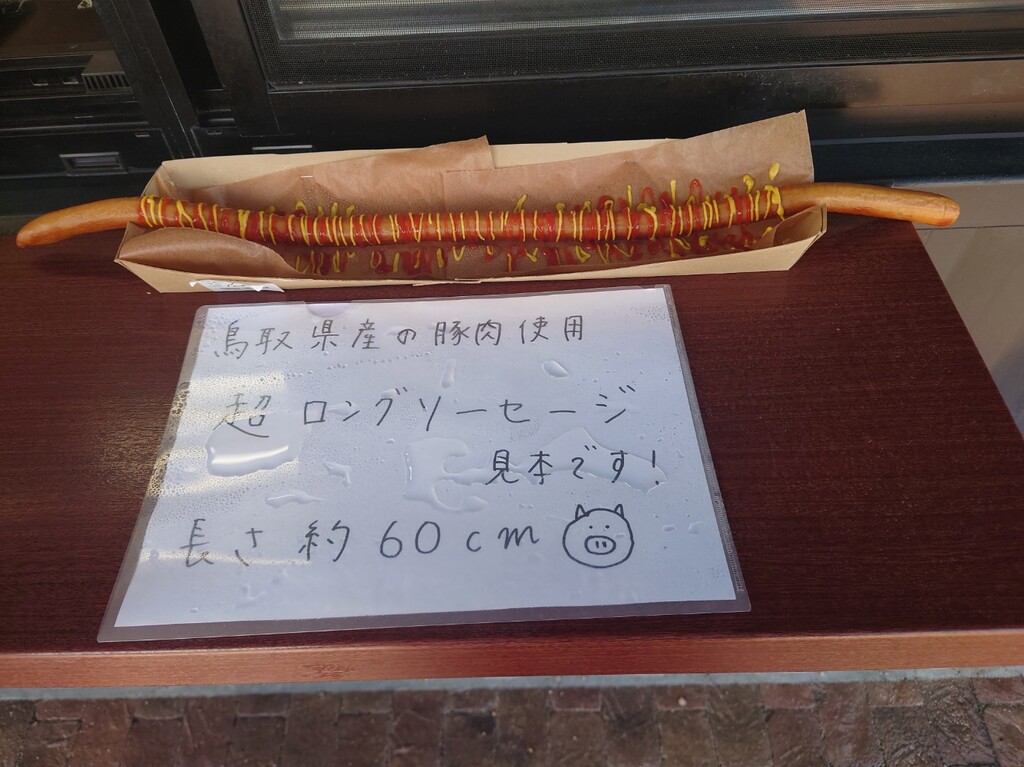 鳥取県産の豚肉使用
超ロングソーセージ
見本です!
長さ約60cm